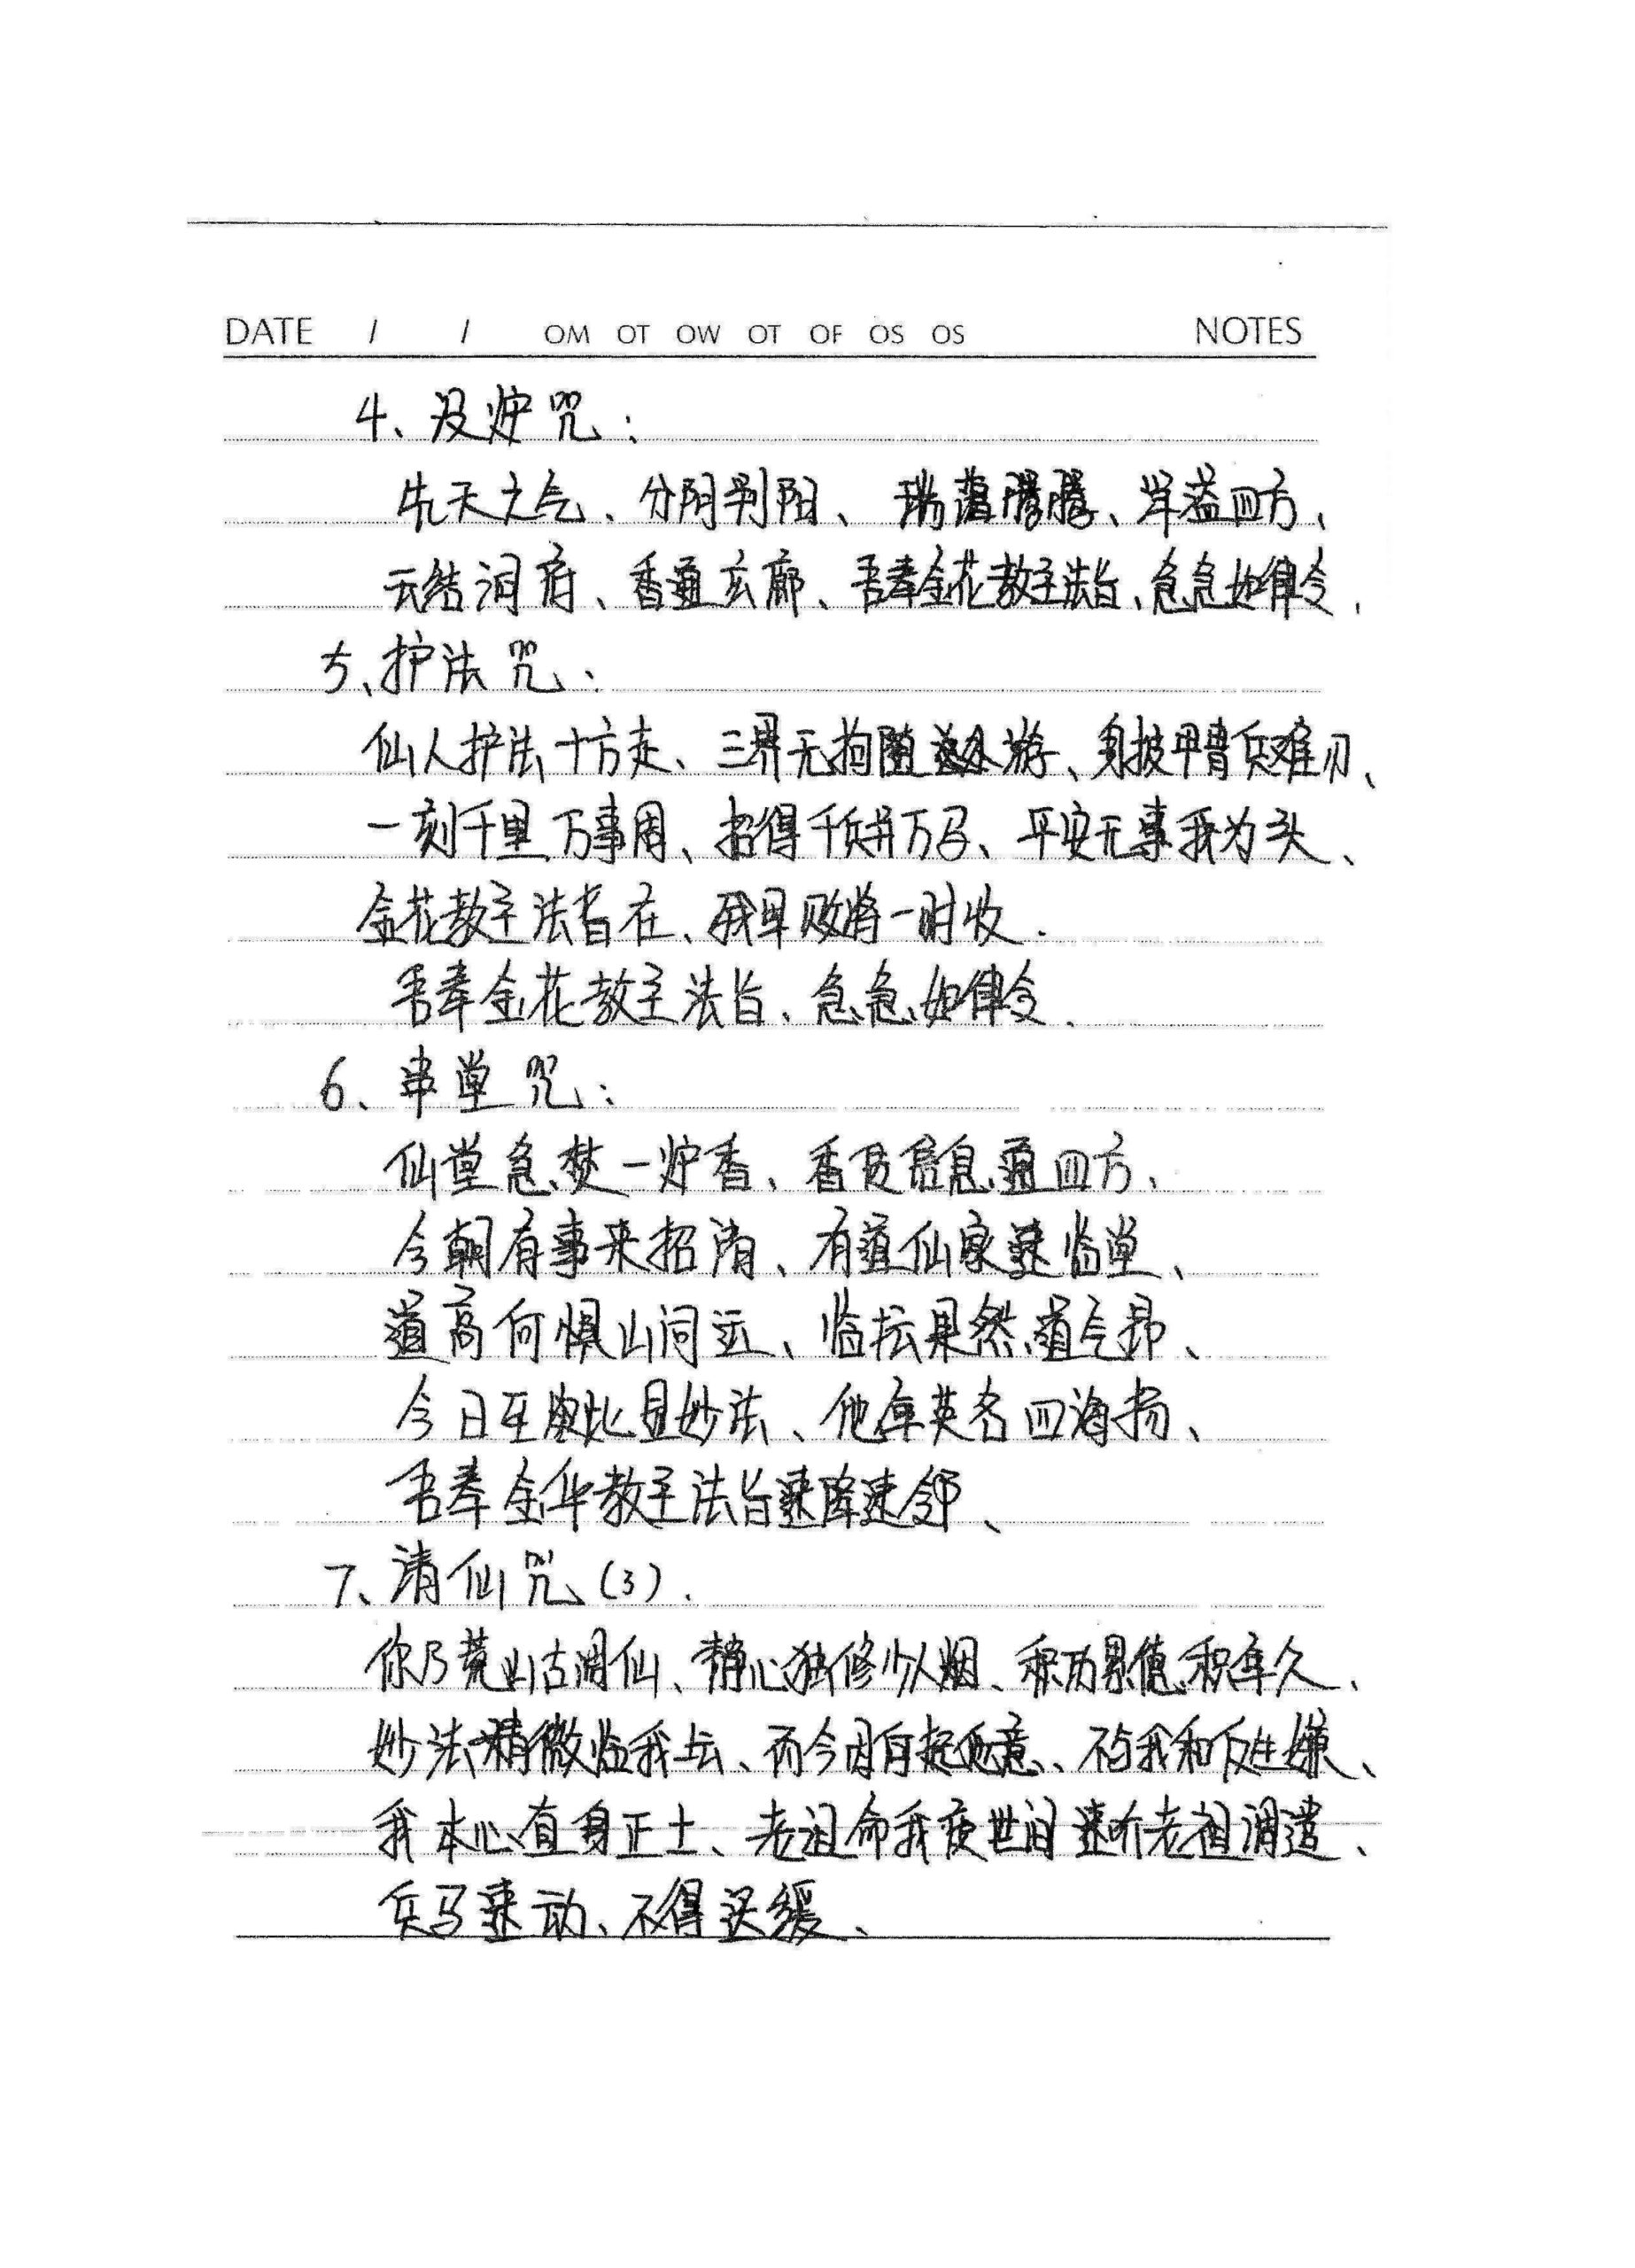 DATE / / OM OT OW OT OF OS OS NOTES
4、设炉咒：
先天之气、分阴判阳、瑞蔼腾腾、祥益四方、
云结洞府、香通玄廊、吾奉金花教主法旨、急急如律令、
5、护法咒、
仙人护法十方走、三界无拘随游、身披甲胄兵难刃、
一刻千里万事周、招得千兵并万马、平安无事我为头、
金花教主法旨在、我早败将一时收.
吾奉金花教主法旨、急急如律令、
6、串堂咒：
仙堂急焚一炉香、香及信息通四方、
今朝有事来招请、有道仙家速临堂、
道高何惧山间远、临坛果然道气昂、
今日至此显妙法、他年英名四海扬、
吾奉金华教主法旨速降速、
7、请仙咒(3).
你乃荒山古洞仙、静心独修少人烟、积功累德积年久、
妙法精微临我坛、而今因自捉他意、不与我和反生嫌、
我本心直身正士、老祖命我度世间速听老祖调遣、
兵马速动、不得迟缓、